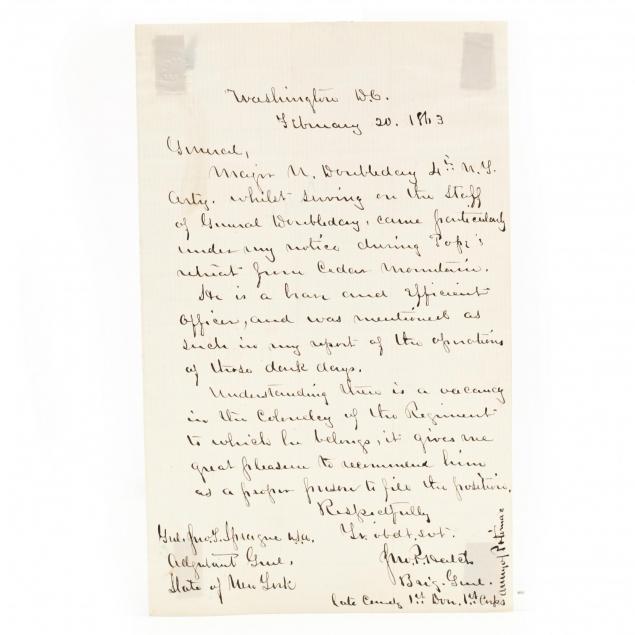 Washington D.C.
February 20. 1863
General,
Major U. Doubleday 4th N.Y.
Arty. whilst serving on the Staff
of General Doubleday, came particularly
under my notice during Pope's
retreat from Cedar Mountain.
He is a brave and efficient
officer, and was mentioned as
such in my report of the operations
of those dark days.
Understanding there is a vacancy
in the Colonelcy of the Regiment
to which he belongs, it gives me
great pleasure to recommend him
as a proper person to fill the position.
Respectfully
Yr. obdt. svt.
Jno. P. Hatch
Brig. Genl.
late Comdg 1st Divn. 1st Corps
Army of Potomac
Genl. Jno. T. Sprague
Adjutant Genl.
State of New York